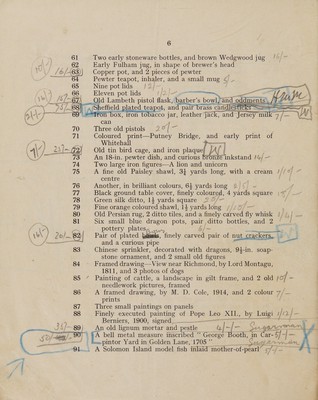 6
61 Two early stoneware bottles, and brown Wedgwood jug
62 Early Fulham jug, in shape of brewer's head
63 Copper pot, and 2 pieces of pewter
64 Pewter teapot, inhaler, and a small mug
65 Nine pot lids
66 Eleven pot lids
67 Old Lambeth pistol flask, barber's bowl, and oddments
68 Sheffield plated teapots, and pair brass candlesticks
69 Iron box, iron tobacco jar, leather jack, and Jersey milk
can
70 Three old pistols
71 Coloured print—Putney Bridge, and early print of
Whitehall
72 Old tin bird cage, and iron plaque
73 An 18-in. pewter dish, and curious bronze inkstand
74 Two large iron figures—A lion and unicorn
75 A fine old Paisley shawl, 3½ yards long, with a cream
centre
76 Another, in brilliant colours, 6½ yards long
77 Black ground table cover, finely coloured, 4 yards square
78 Green silk ditto, 1½ yards square
79 Fine orange coloured shawl, 1½ yards long
80 Old Persian rug, 2 ditto tiles, and a finely carved fly whisk
81 Six small dragon pots, pair ditto bottles, and 2
pottery plates
82 Pair of plated finely carved pair of nut crackers,
and a curious pipe
83 Chinese sprinkler, decorated with dragons, 9½-in. soap-
stone ornament, and 2 small old figures
84 Framed drawing—View near Richmond, by Lord Montagu,
1811, and 3 photos of dogs
85 Painting of cattle, a landscape in gilt frame, and 2 old
needlework pictures, framed
86 A framed drawing, by M. D. Cole, 1914, and 2 colour
prints
87 Three small paintings on panels
88 Finely executed painting of Pope Leo XII., by Luigi
Berniere, 1900, signed
89 An old lignum mortar and pestle
90 A bell metal measure inscribed "George Booth, in Car-
pintor Yard in Golden Lane, 1705"
91 A Solomon Island model fish inlaid mother-of-pearl